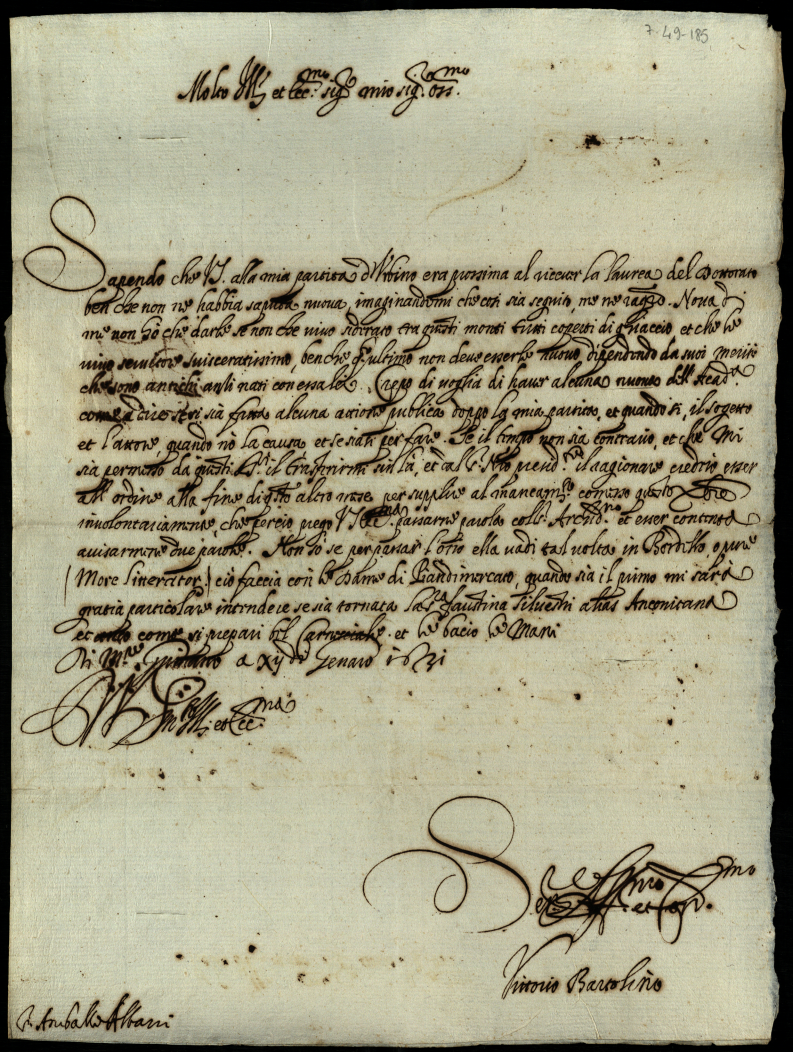 7-49-185
Molto Ill. et Ecc.mo sig.re mio sig.r oss.mo
Sapendo che V.S. alla mia partita d'Urbino era prossima al ricever la laurea del Dottorato
ben che non ne habbia saputa nuova, imaginandomi che così sia seguito, me ne
me non hò che darle se non che vivo tra questi monti tutti coperti di ghiaccio et che le
vivo servitore svisceratissimo, benche q.st'ultimo non deve esserle nuovo, dipendendo da suoi meriti
che sono antichi anzi nati con essa lei. Crepo di voglia di haver alcuna nuova dell'Acad.a
come si sia fatta alcuna attione publica doppo la mia partita, et quando sì, il sogetto
et l'attore, quando nò la causa et se sia per fare. Se il tempo non sia contrario, et che mi
sia permesso da questi il trasferirmi sin là, et il ragionare credrio esser
all'ordine alla fine di q.sto altro mese per supplire al mancam.to comesso questo
involontariamente, che perciò prego V.S. passarne parola coll. et esser contenta
avisarmene due parole. Non sò se per passar l'otio ella vadi tal volta in Bordello, o pure
(More litterator.) ciò faccia con le Dame di Piandimercato, quando sia il primo mi sarà
gratia particolare intendere se sia tornata la S.ra Faustina Silvestri alias Anconitana
et come si prepari bel Carnevale. et le bacio le Mani
Di M.te a xij di Genaro 1631
D V.S. m.to Ill. et Ecc.ma
Ser.re Aff.mo et
Vittorio Bartolino
S. Anibale Albani